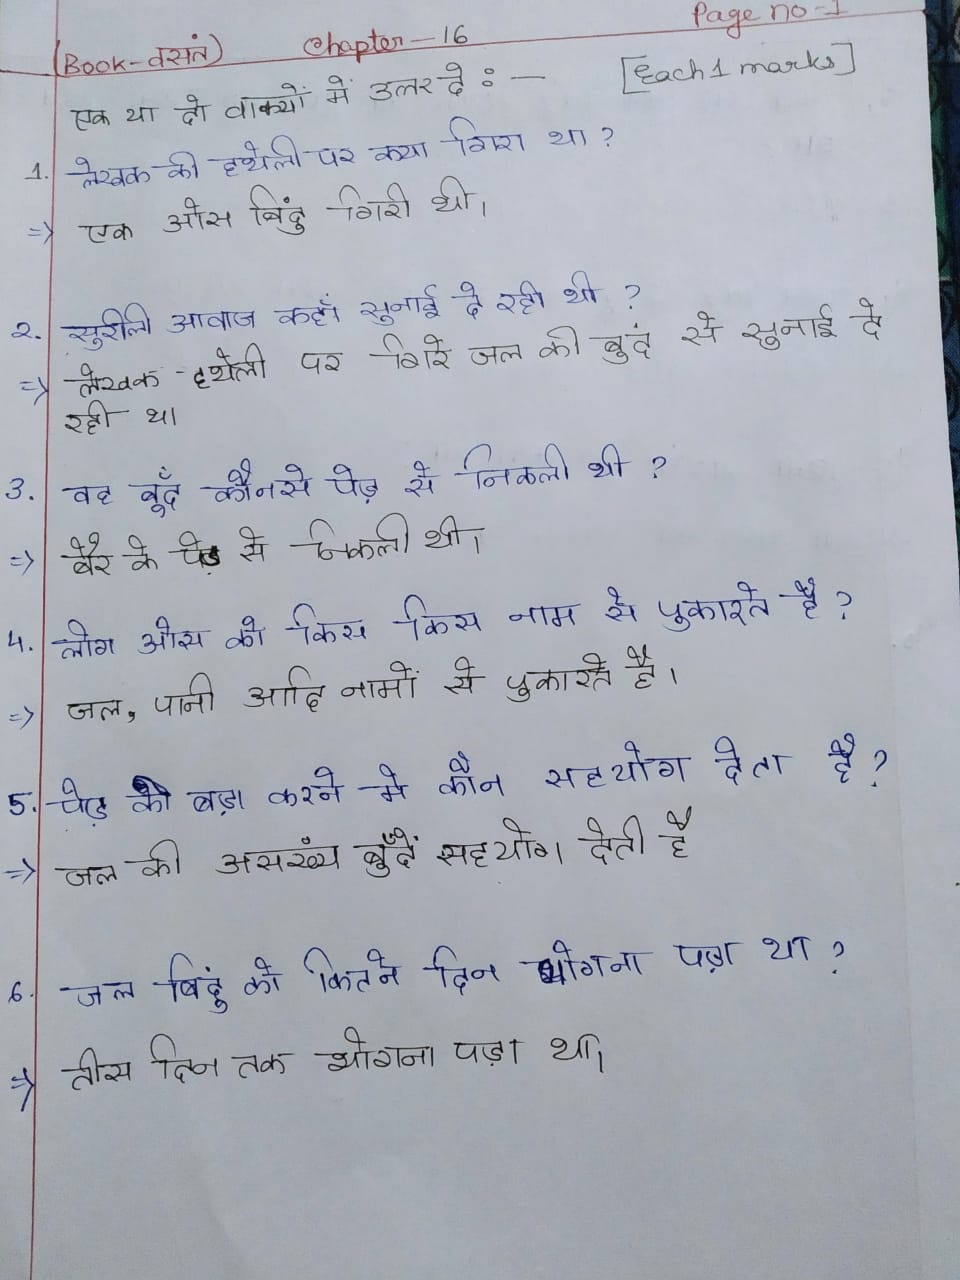 Page no-1
(Book-वसंत) Chapter-16
एक या दो वाक्यों में उत्तर दे :- [Each 1 marks]
1. लेखक की हथेली पर क्या गिरा था ?
=> एक ओस बिंदु गिरी थी।
2. सुरीली आवाज कहाँ सुनाई दे रही थी ?
=> लेखक हथेली पर गिरे जल की बुदं से सुनाई दे
रही था।
3. वह बूँद कौनसे पेड़ से निकली थी ?
=> बेर के पेड़ से निकली थी।
4. लोग ओस को किस किस नाम से पुकारते है ?
=> जल, पानी आदि नामों से पुकारते है।
5. पेड़ को बड़ा करने मे कौन सहयोग देता है ?
=> जल की असख्ंय बुँदें सहयोग देती है
6. जल बिंदुं को कितने दिन भोगना पड़ा था ?
=> तीस दिन तक भोगना पड़ा था।